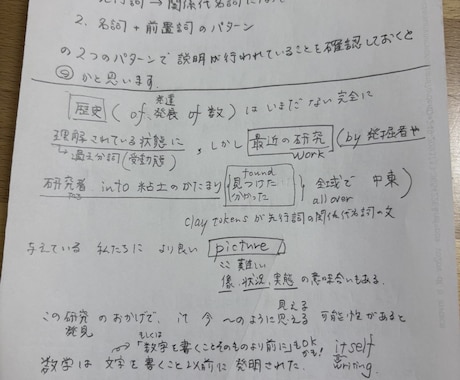 先行詞 → 関係代名詞
2. 名詞 + 前置詞のパターン
の2つのパターンで説明が行われていることを確認しておくと
◎ かと思います.
歴史 (of 発達 発展 of 数) はいまだない完全に
理解されている状態に, しかし 最近の研究 (by 発掘者や
過去分詞(受動態) work
研究者 into 粘土のかたまり found 見つけた 分かった 全域で 中東)
all over
clay tokens が先行詞の関係代名詞の文
与えている 私たちに より良い picture
ここ難しい
像, 状況, 実態 の意味合いもある.
この研究のおかげで, it 今 〜のように思える 可能性があると
発見 見える
もしくは 「数字を書くことそのものより前に」もokかも! itself
数学は 文字を書くこと以前に 発明された. writing.